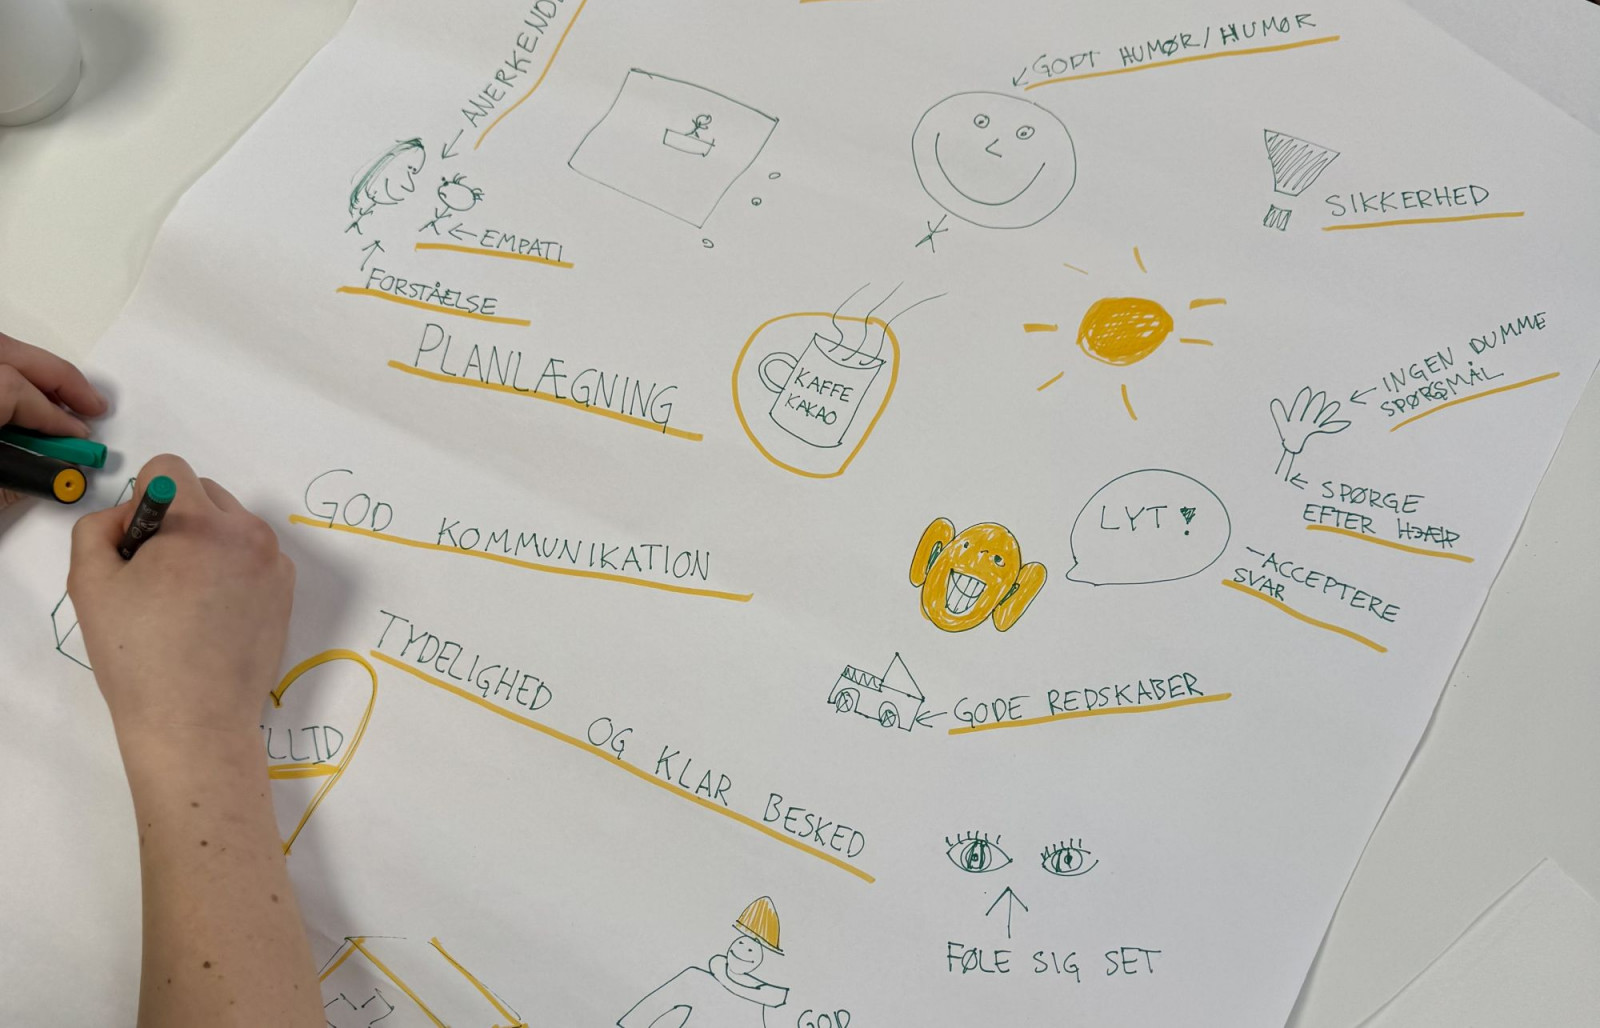 ANERKEND
GODT HUMØR / HUMØR
SIKKERHED
EMPATI
FORSTÅELSE
PLANLÆGNING
KAFFE
KAKAO
INGEN DUMME
SPØRGSMÅL
SPØRGE
EFTER
GOD KOMMUNIKATION
LYT!
-ACCEPTERE
SVAR
TYDELIGHED OG KLAR BESKED
LLID
GODE REDSKABER
FØLE SIG SET
GOD